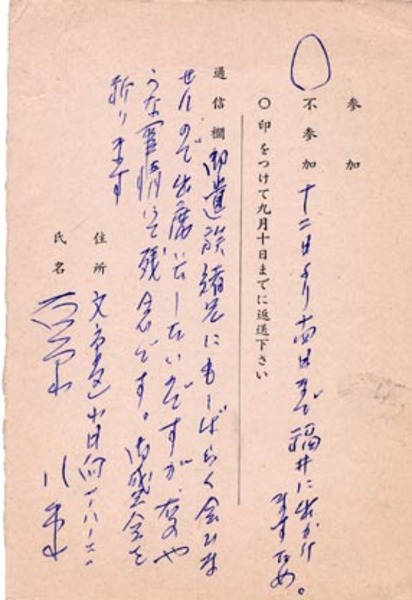 参加
不参加 十二日より十四日まで福井に出かけ
ますため。
〇印をつけて九月十日までに返送下さい
通信欄 御遺族諸兄にもしばらく会いま
せんので出席いたしたいですが、右のや
うな事情にて残念です。御盛会を
祈ります
住所 文京区小日向
氏名